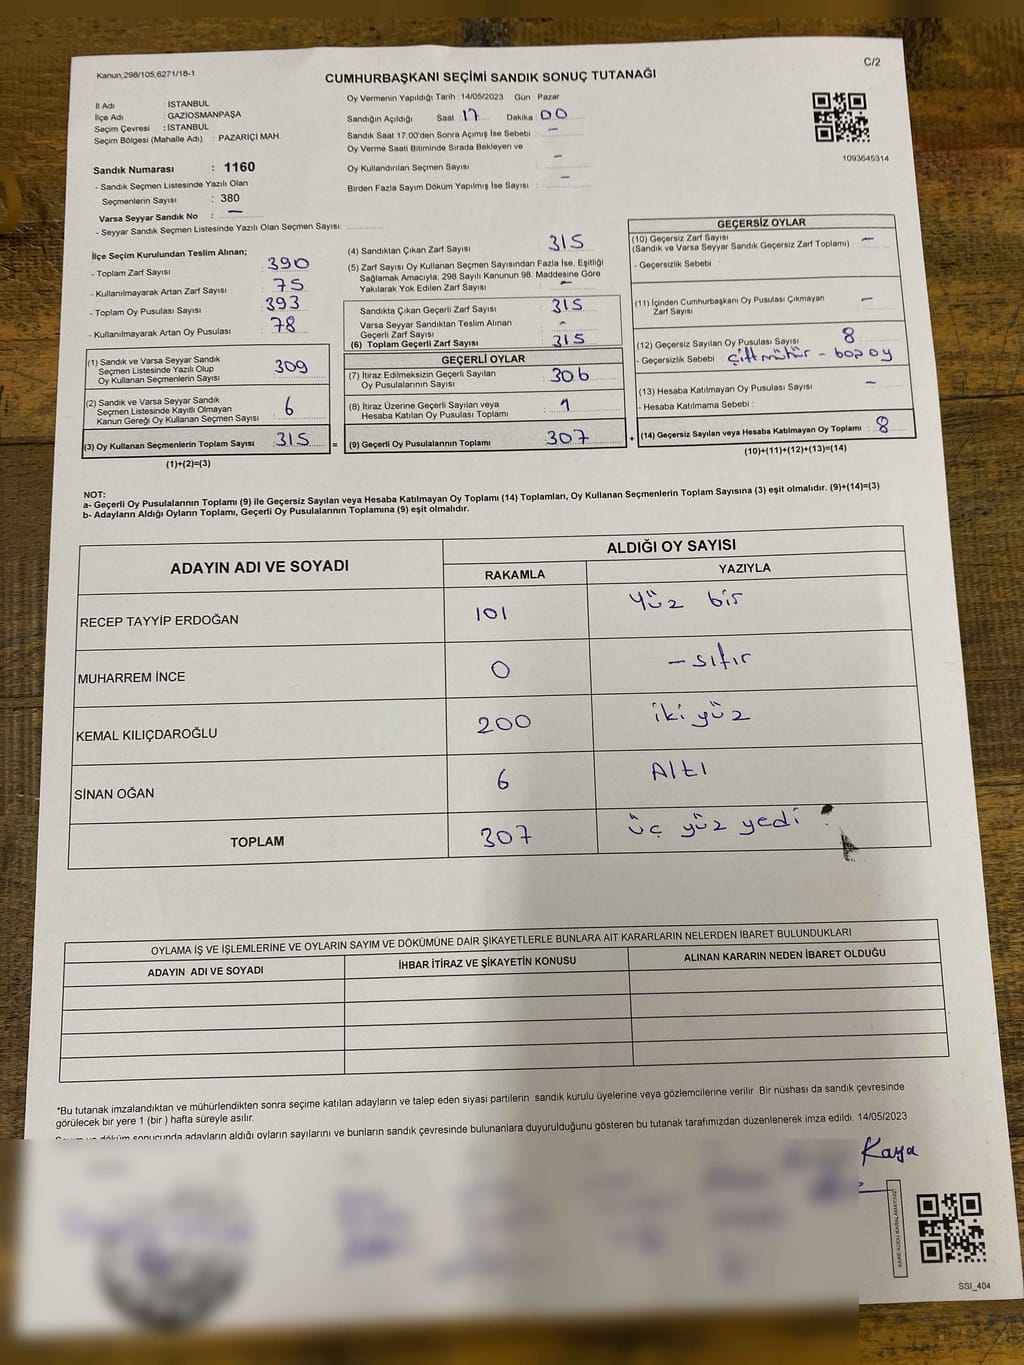 Kanun,298/105,6271/18-1
C/2
CUMHURBAŞKANI SEÇİMİ SANDIK SONUÇ TUTANAĞI
İl Adı : İSTANBUL
İlçe Adı : GAZİOSMANPAŞA
Seçim Çevresi : İSTANBUL
Seçim Bölgesi (Mahalle Adı) : PAZARİÇİ MAH.
Sandık Numarası : 1160
- Sandık Seçmen Listesinde Yazılı Olan
Seçmenlerin Sayısı : 380
Varsa Seyyar Sandık No : -
- Seyyar Sandık Seçmen Listesinde Yazılı Olan Seçmen Sayısı:
Oy Vermenin Yapıldığı Tarih : 14/05/2023 Gün : Pazar
Sandığın Açıldığı Saat : 17 Dakika : 00
Sandık Saat 17.00'den Sonra Açımış İse Sebebi : -
Oy Verme Saati Bitiminde Sırada Bekleyen ve
Oy Kullandırılan Seçmen Sayısı : -
Birden Fazla Sayım Döküm Yapılmış İse Sayısı : -
1093645314
İlçe Seçim Kurulundan Teslim Alınan;
- Toplam Zarf Sayısı : 390
- Kullanılmayarak Artan Zarf Sayısı : 75
- Toplam Oy Pusulası Sayısı : 393
- Kullanılmayarak Artan Oy Pusulası : 78
(1) Sandık ve Varsa Seyyar Sandık
Seçmen Listesinde Yazılı Olup
Oy Kullanan Seçmenlerin Sayısı : 309
(2) Sandık ve Varsa Seyyar Sandık
Seçmen Listesinde Kayıtlı Olmayan
Kanun Gereği Oy Kullanan Seçmen Sayısı : 6
(3) Oy Kullanan Seçmenlerin Toplam Sayısı : 315
(1)+(2)=(3)
(4) Sandıktan Çıkan Zarf Sayısı : 315
(5) Zarf Sayısı Oy Kullanan Seçmen Sayısından Fazla İse, Eşitliği
Sağlamak Amacıyla, 298 Sayılı Kanunun 98. Maddesine Göre
Yakılarak Yok Edilen Zarf Sayısı : -
Sandıkta Çıkan Geçerli Zarf Sayısı : 315
Varsa Seyyar Sandıktan Teslim Alınan
Geçerli Zarf Sayısı : -
(6) Toplam Geçerli Zarf Sayısı : 315
GEÇERLİ OYLAR
(7) İtiraz Edilmeksizin Geçerli Sayılan
Oy Pusulalarının Sayısı : 306
(8) İtiraz Üzerine Geçerli Sayılan veya
Hesaba Katılan Oy Pusulası Toplamı : 1
= (9) Geçerli Oy Pusulalarının Toplamı : 307
GEÇERSİZ OYLAR
(10) Geçersiz Zarf Sayısı : -
(Sandık ve Varsa Seyyar Sandık Geçersiz Zarf Toplamı)
- Geçersizlik Sebebi :
(11) İçinden Cumhurbaşkanı Oy Pusulası Çıkmayan
Zarf Sayısı : -
(12) Geçersiz Sayılan Oy Pusulası Sayısı : 8
- Geçersizlik Sebebi : Çift mühür - boş oy
(13) Hesaba Katılmayan Oy Pusulası Sayısı : -
- Hesaba Katılmama Sebebi :
+ (14) Geçersiz Sayılan veya Hesaba Katılmayan Oy Toplamı : 8
(10)+(11)+(12)+(13)=(14)
NOT:
a- Geçerli Oy Pusulalarının Toplamı (9) ile Geçersiz Sayılan veya Hesaba Katılmayan Oy Toplamı (14) Toplamları, Oy Kullanan Seçmenlerin Toplam Sayısına (3) eşit olmalıdır. (9)+(14)=(3)
b- Adayların Aldığı Oyların Toplamı, Geçerli Oy Pusulalarının Toplamına (9) eşit olmalıdır.
ADAYIN ADI VE SOYADI
ALDIĞI OY SAYISI
RAKAMLA YAZIYLA
RECEP TAYYİP ERDOĞAN 101 yüz bir
MUHARREM İNCE 0 - sıfır
KEMAL KILIÇDAROĞLU 200 iki yüz
SİNAN OĞAN 6 Altı
TOPLAM 307 üç yüz yedi
OYLAMA İŞ VE İŞLEMLERİNE VE OYLARIN SAYIM VE DÖKÜMÜNE DAİR ŞİKAYETLERLE BUNLARA AİT KARARLARIN NELERDEN İBARET BULUNDUKLARI
ADAYIN ADI VE SOYADI İHBAR İTİRAZ VE ŞİKAYETİN KONUSU ALINAN KARARIN NEDEN İBARET OLDUĞU
*Bu tutanak imzalandıktan ve mühürlendikten sonra seçime katılan adayların ve talep eden siyasi partilerin sandık kurulu üyelerine veya gözlemcilerine verilir .Bir nüshası da sandık çevresinde
görülecek bir yere 1 (bir ) hafta süreyle asılır.
döküm sonucunda adayların aldığı oyların sayılarını ve bunların sandık çevresinde bulunanlara duyurulduğunu gösteren bu tutanak tarafımızdan düzenlenerek imza edildi. 14/05/2023
Kaya
KARE KODU KARALAMAYINIZ
SSI_404